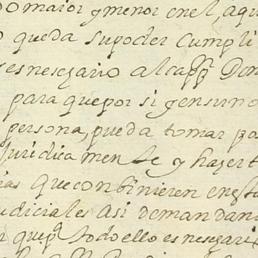 o maior y menor en el, aqu
o queda su poder cumpli
es nesesario al capp.n Don
para que por si y en su no
persona, pueda tomar pa
Juridica mente y hazer t
ias que conbinieren en est
udiciales asi demandan
r que p.a todo ello es nesesari